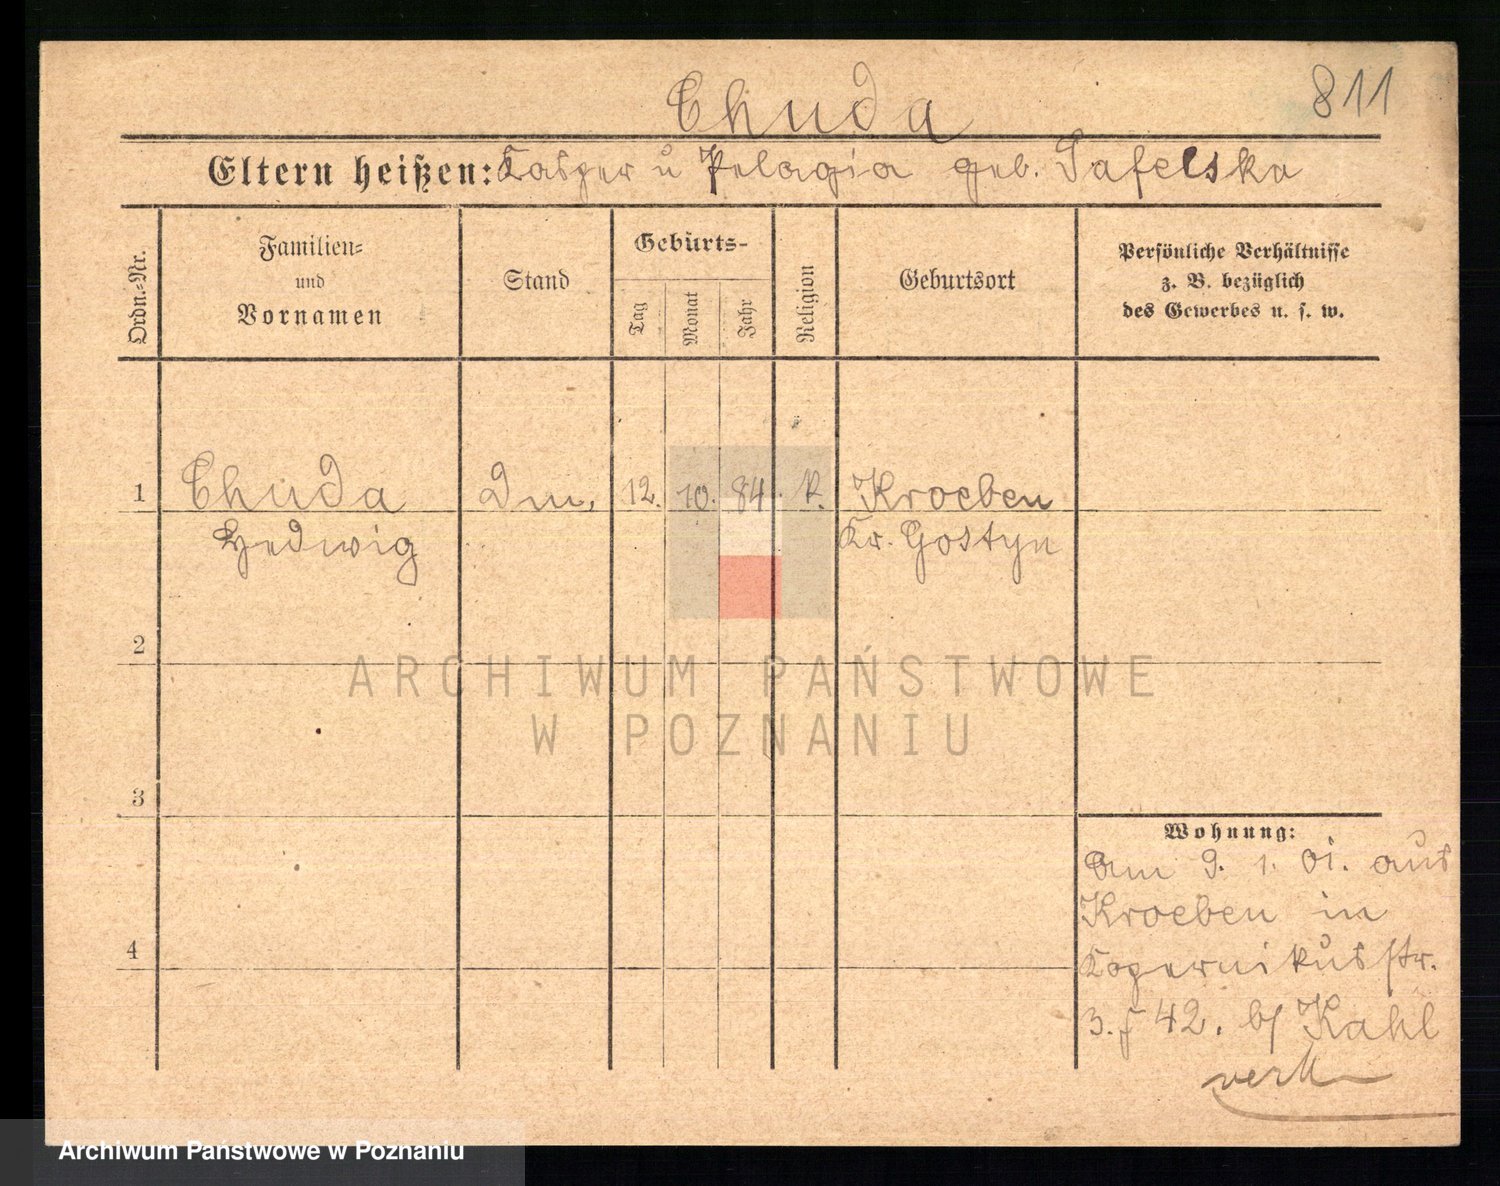 Chuda 811
Eltern heißen: Kasper u Pelagia geb. Tafelska
Ordn.-Nr.
Familien-
und
Vornamen
Stand
Geburts-
Tag
Monat
Jahr
Religion
Geburtsort
Persönliche Verhältnisse
z. B. bezüglich
des Gewerbes u. s. w.
1 Chuda Dm. 12. 10. 84. k. Kroeben
Hedwig Kr. Gostyn
2
ARCHIWUM PAŃSTWOWE
W POZNANIU
3
Wohnung:
Am 9. 1. 01. aus
4
Kroeben in
Kopernikusstr.
3. J 42. b/ Kahl
Archiwum Państwowe w Poznaniu